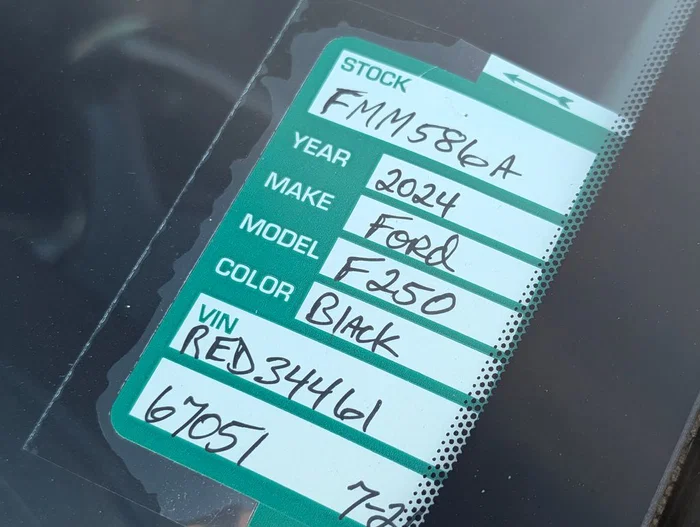 STOCK
FMM586A
YEAR 2024
MAKE Ford
MODEL F250
COLOR Black
VIN
RED34461
67051